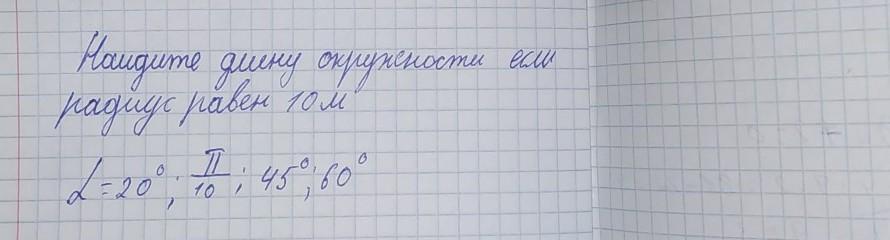 Найдите длину окружности если
радиус равен 10 м
α = 20°; π/10; 45°; 60°